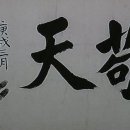 敬天
庚戌三月